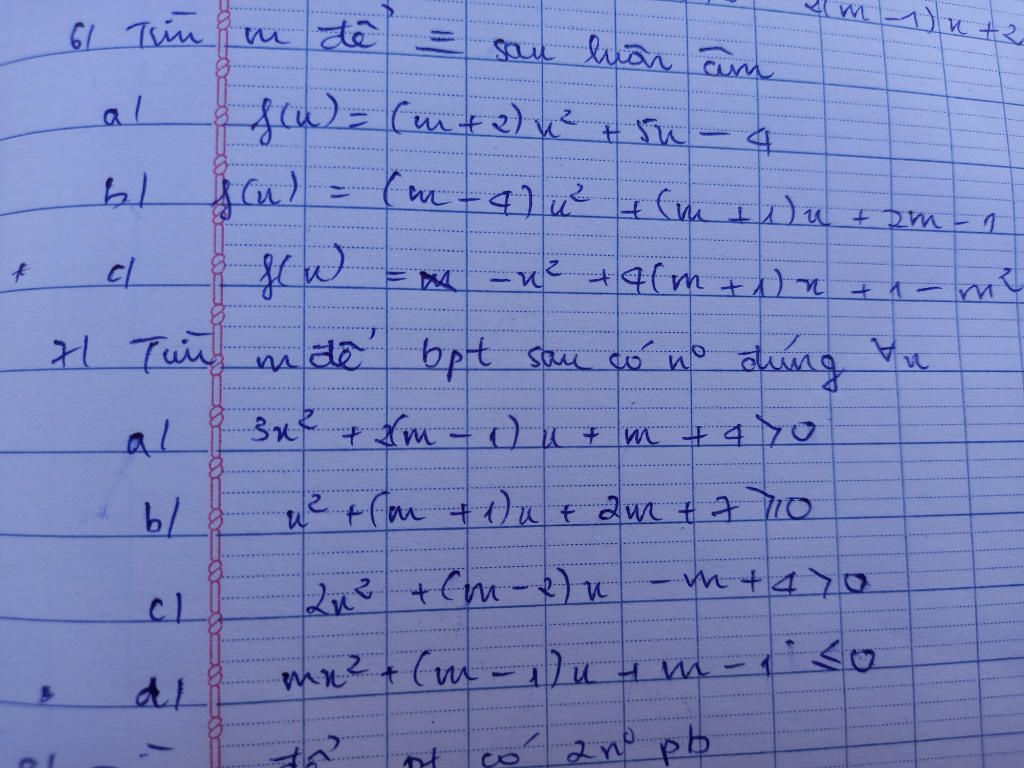 2(m - 1)x + 2
6/ Tìm m để = sau luôn âm
a/ f(x) = (m + 2)x² + 5x - 4
b/ f(x) = (m - 4)x² + (m + 1)x + 2m - 1
* c/ f(x) = - x² + 4(m + 1)x + 1 - m²
7/ Tìm m để bpt sau có nº đúng ∀x
a/ 3x² + 2(m - 1)x + m + 4 > 0
b/ x² + (m + 1)x + 2m + 7 ≥ 0
c/ 2x² + (m - 2)x - m + 4 > 0
d/ mx² + (m - 1)x + m - 1 ≤ 0
để pt có 2nº pb